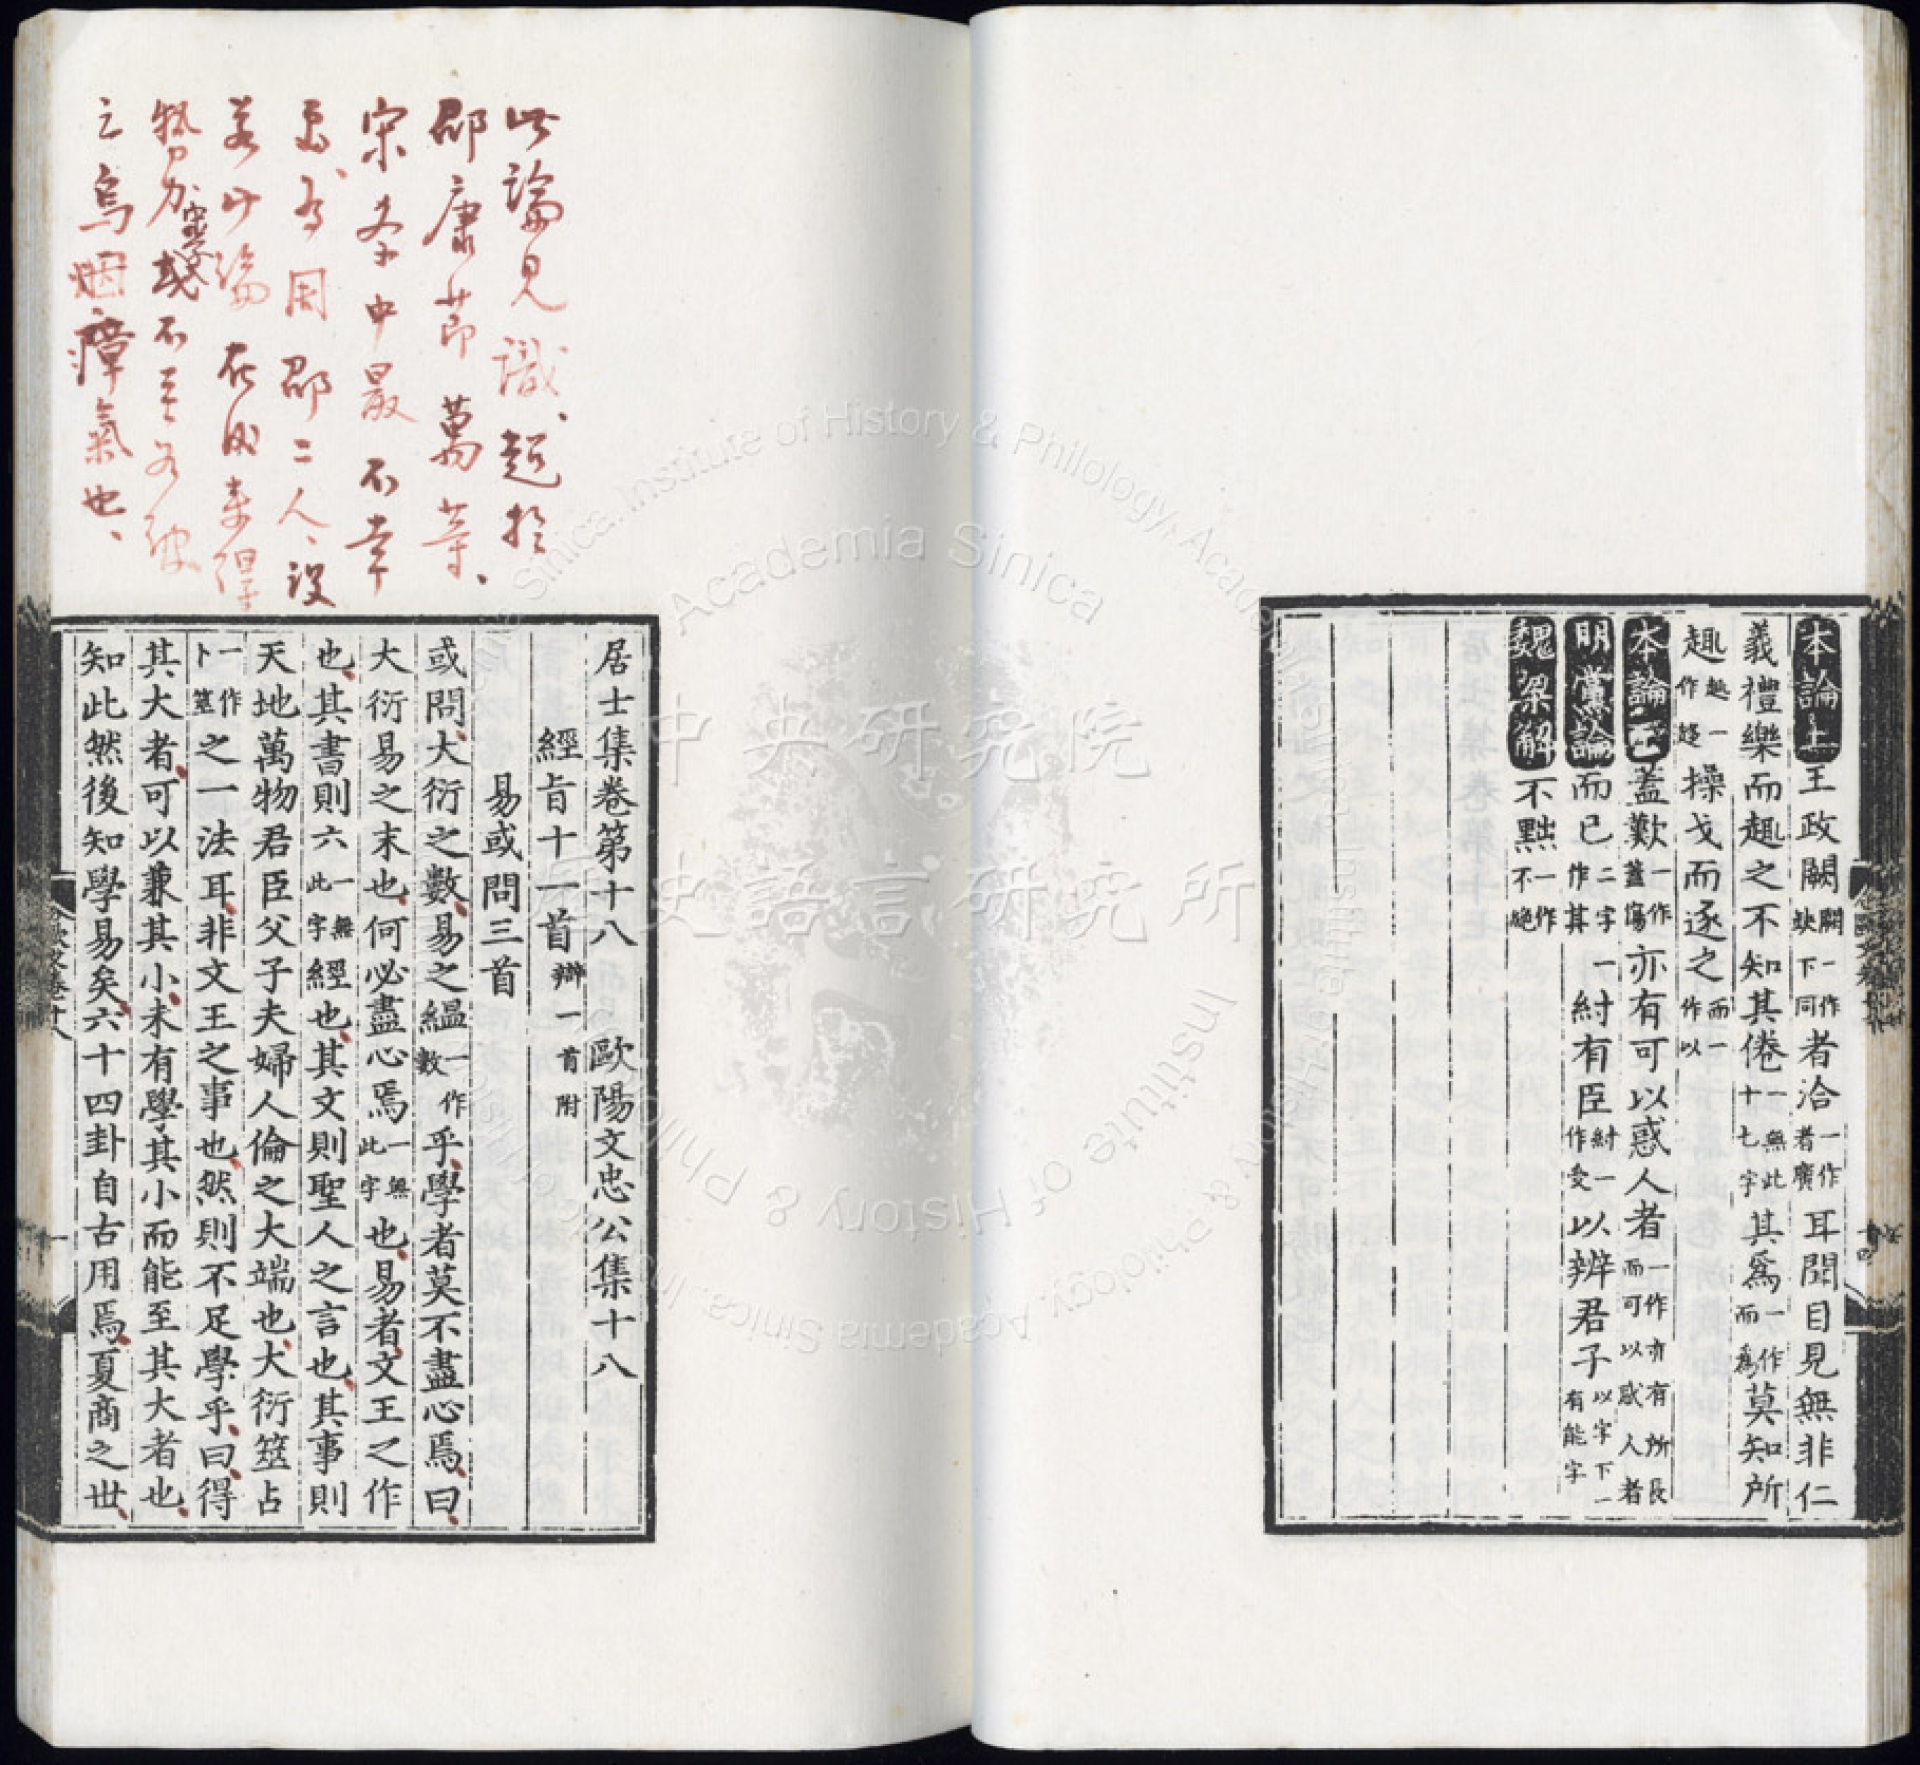 本論上 王政闕闕一作缺下同者洽一作者廣耳聞目見無非仁
義禮樂而趣之不知其倦一無此十七字其為一作而為莫知所
趣趣一作趍操戈而逐之而一作以
本論下 蓋歎一作蓋傷亦有可以惑人者一作亦有所長而可以惑人者
朋黨論 而已二字一作其紂有臣紂一作受以辨君子以字下一有能字
魏梁解 不黜一作不絕
此論見識、超於
邵康節萬等、
宋學中最不幸
焉、為周邵二人、設
若此論在政策得
勢力宋學或不至為彼
之烏烟瘴氣也、
居士集卷第十八 歐陽文忠公集十八
經旨十一首辯一首附
易或問三首
或問大衍之數易之緼一作數乎學者莫不盡心焉曰
大衍易之末也何必盡心焉一無此字也易者文王之作
也其書則六一無此字經也其文則聖人之言也其事則
天地萬物君臣父子夫婦人倫之大端也大衍筮占
一作卜筮之一法耳非文王之事也然則不足學乎曰得
其大者可以兼其小未有學其小而能至其大者也
知此然後知學易矣六十四卦自古用焉夏商之世
歐文卷十八
一
中央研究院
歷史語言研究所
Academia Sinica
Institute of History & Philology, Academia Sinica.